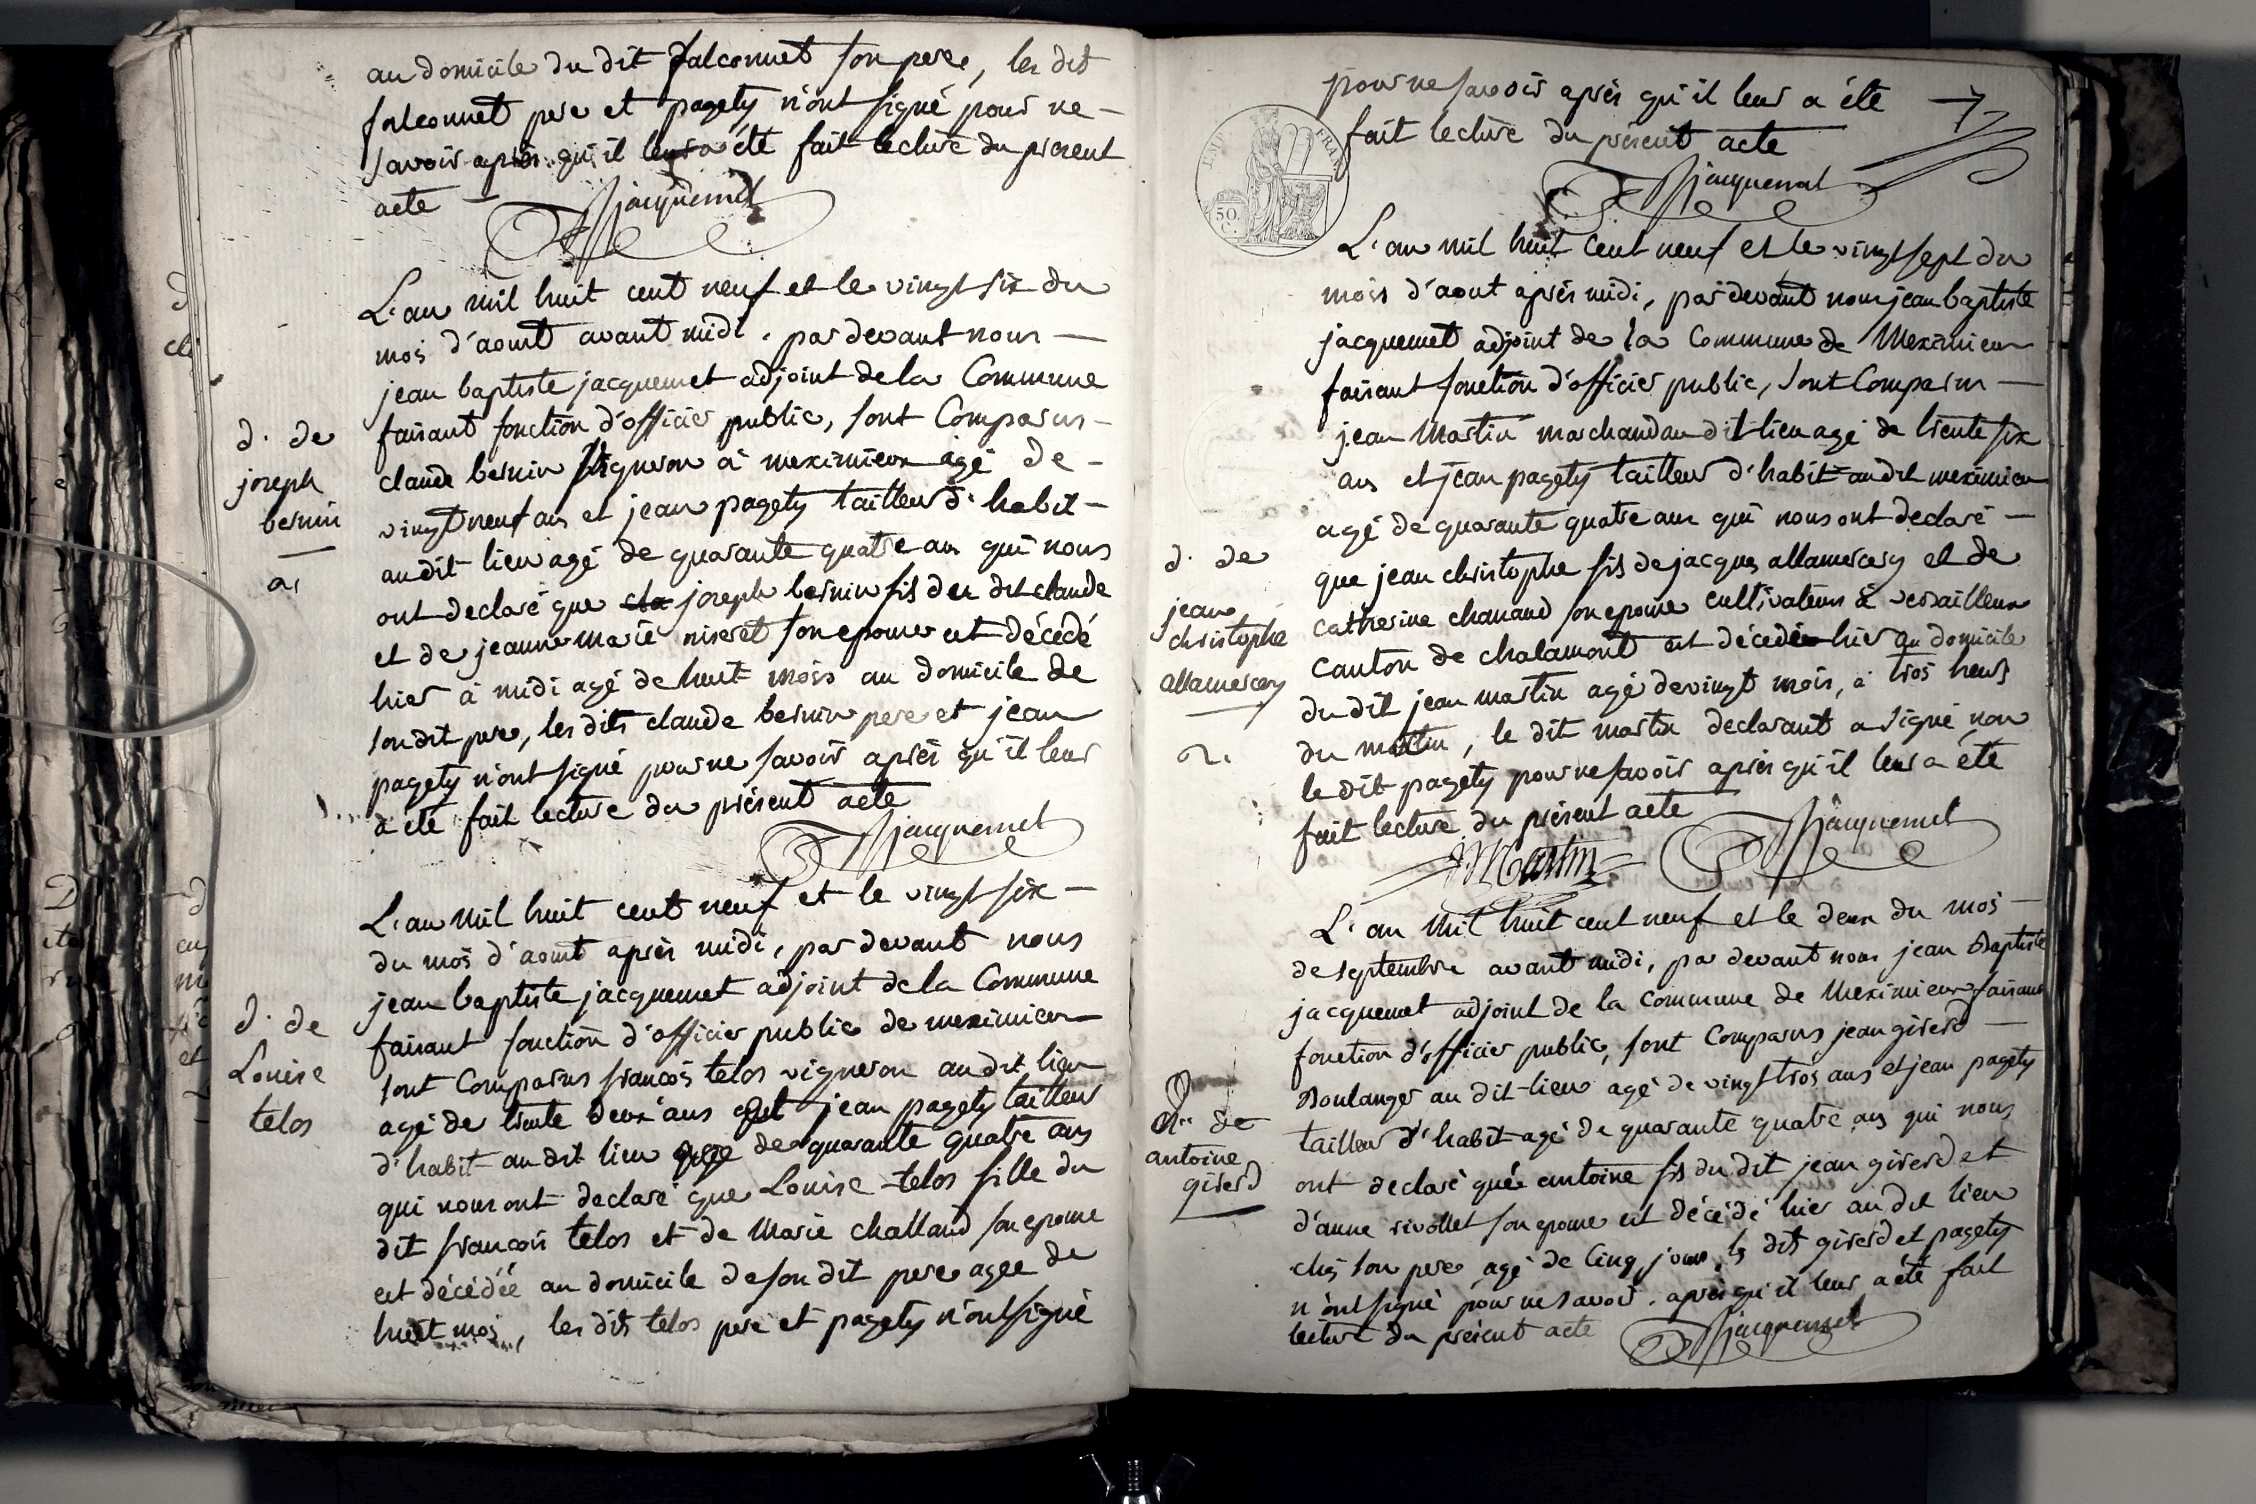 au domicile du dit falconnet son pere, les dit
falconnet pere et pagety n'ont signé pour ne –
savoir après qu'il leur a été fait lecture du present
acte –
Jacquemet
L'an mil huit cent neuf et le vingt six du
mois d'aout avant midi, par devant nous —
jean baptiste jacquemet adjoint de la Commune
faisant fonction d'officier public, sont Comparus –
d. de
joseph
bernin
claude bernin Vigneron à meximieux agé de –
vingt neuf ans et jean pagety tailleur d'habit –
au dit lieu agé de quarante quatre ans qui nous
ont declaré que joseph bernin fils du dit claude
et de jeanne marie niseret son epouse est décédé
hier à midi agé de huit mois au domicile de
son dit pere, les dits claude bernin pere et jean
pagety n'ont signé pour ne savoir après qu'il leur
a été fait lecture du présent acte
Jacquemet
L'an mil huit cent neuf et le vingt six –
du mois d'aout après midi, par devant nous
jean baptiste jacquemet adjoint de la Commune
d. de
Louise
telos
faisant fonction d'officier public de meximieux
sont Comparus francois telos vigneron au dit lieu
agé de trente deux ans et jean pagety tailleur
d'habit au dit lieu agé de quarante quatre ans
qui nous ont declaré que Louise telos fille du
dit francois telos et de Marie challand son epouse
est décédée au domicile de son dit pere agee de
huit mois, les dits telos pere et pagety n'ont signé
pour ne savoir après qu'il leur a été
fait lecture du présent acte
EMP. FRAN
50. C.
Jacquemet
L'an mil huit cent neuf et le vingt sept du
mois d'aout après midi, par devant nous jean baptiste
jacquemet adjoint de la Commune de Meximieux
faisant fonction d'officier public, sont Comparus —
jean Martin marchand au dit lieu agé de trente six
ans et jean pagety tailleur d'habit au dit meximieux
agé de quarante quatre ans qui nous ont declaré –
d. de
jean
christophe
allamercery
que jean christophe fils de jacques allamercery et de
catherine chanand son epouse cultivateurs à versailleux
canton de chalamont est décédé hier au domicile
du dit jean martin agé de vingt mois, à trois heurs
du matin, le dit martin declarant a signé non
le dit pagety pour ne savoir après qu'il leur a été
fait lecture du présent acte
JMartin
Jacquemet
L'an Mil huit cent neuf et le deux du mois –
de septembre avant midi, par devant nous jean Baptiste
jacquemet adjoint de la commune de Meximieux faisant
fonction d'officier public, sont Comparus jean girerd —
de
antoine
girerd
Boulanger au dit lieu agé de vingt trois ans et jean pagety
tailleur d'habit agé de quarante quatre ans qui nous
ont declaré que antoine fils du dit jean girerd et
d'anne rivollet son epouse est décédé hier au dit lieu
chés son pere agé de Cinq jours, ls dits girerd et pagety
n'ont signé pour ne savoir, après qu'il leur a été fait
lecture du présent acte
Jacquemet